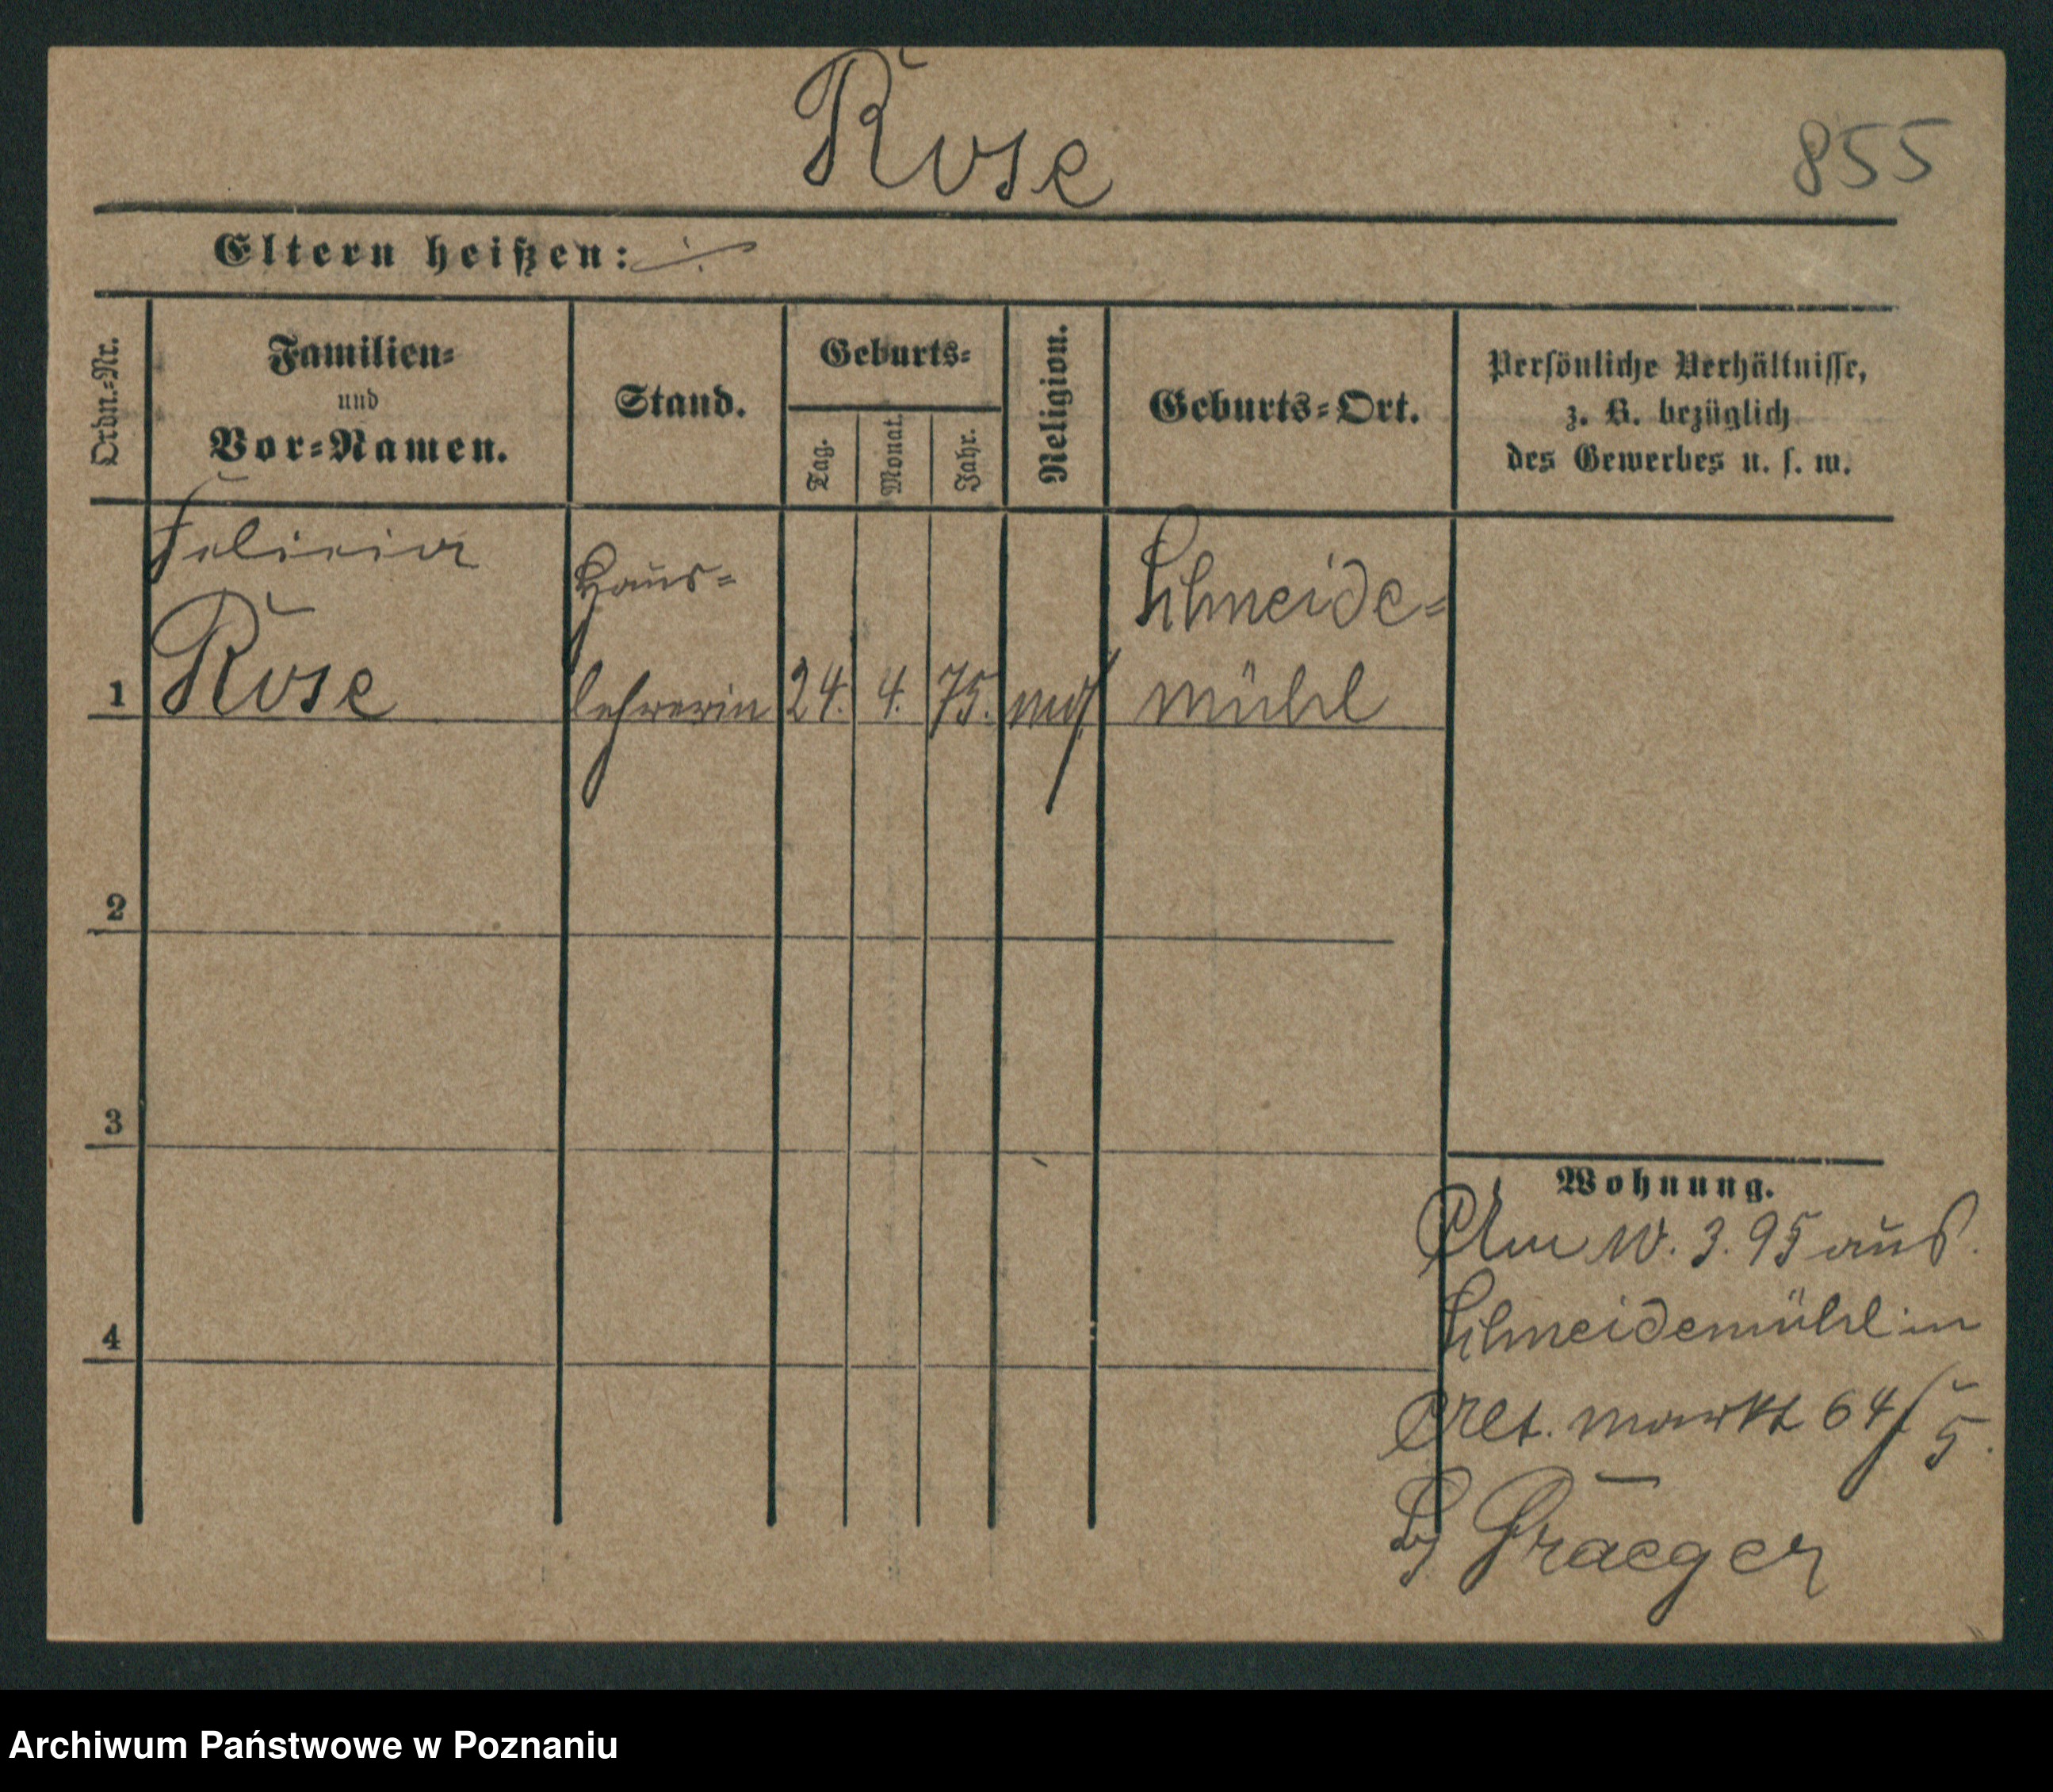 Rose
855
Eltern heißen:
Ordn.-Nr.
Familien-
und
Vor-Namen.
Stand.
Geburts-
Tag.
Monat.
Jahr.
Religion.
Geburts-Ort.
Persönliche Verhältnisse,
z. B. bezüglich
des Gewerbes u. s. w.
Felicia
Haus-
Schneide-
1 Rose lehrerin 24. 4. 75. mos. mühl
2
3
4
Wohnung.
Am 10. 3. 95 aus
Schneidemühl in
Alt. markt 64/5.
Praeger
Archiwum Państwowe w Poznaniu